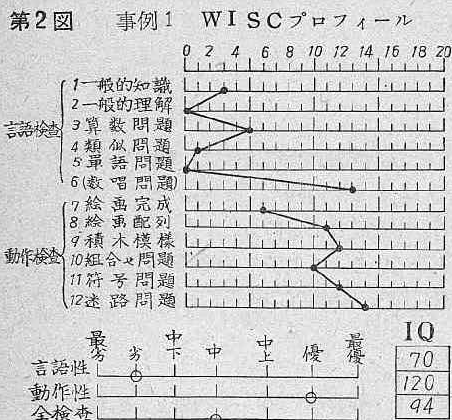 第2図 事例1 WISCプロフィール
0 2 4 6 8 10 12 14 16 18 20
言語検査
1 一般的知識
2 一般的理解
3 算数問題
4 類似問題
5 単語問題
6 (数唱問題)
動作検査
7 絵画完成
8 絵画配列
9 積木模様
10 組合せ問題
11 符号問題
12 迷路問題
最劣 劣 中下 中 中上 優 最優 IQ
言語性 70
動作性 120
全検査 94